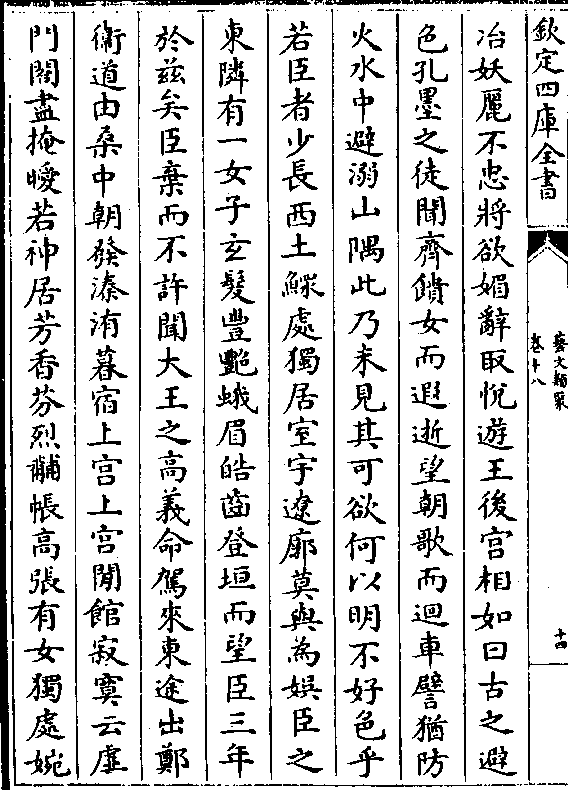 欽定四庫全書
藝文類聚
卷十八
十四
冶妖麗不忠將欲媚辭取悅遊王後宫相如曰古之避
色孔墨之徒聞齊饋女而遐逝望朝歌而迴車譬猶防
火水中避溺山隅此乃未見其可欲何以明不好色乎
若臣者少長西土鰥處獨居室宇遼廓莫與為娱臣之
東隣有一女子玄髮豐艷蛾眉皓齒登垣而望臣三年
於兹矣臣棄而不許聞大王之高義命駕來東途出鄭
衞道由桑中朝發溱洧暮宿上宫上宫閒館寂寞云虚
門閤盡掩曖若神居芳香芬烈黼帳高張有女獨處婉